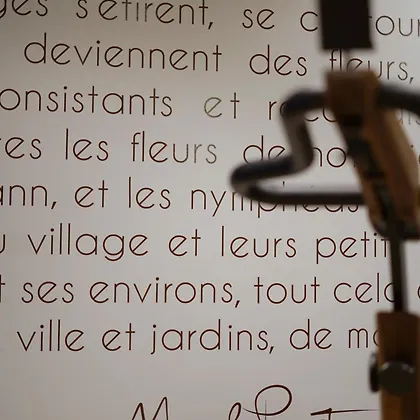 s'étirent, se
deviennent des fleurs,
onsistants et
es les fleurs de
ann, et les nymphéas
village et leurs petit
t ses environs, tout cela
ville et jardins, de